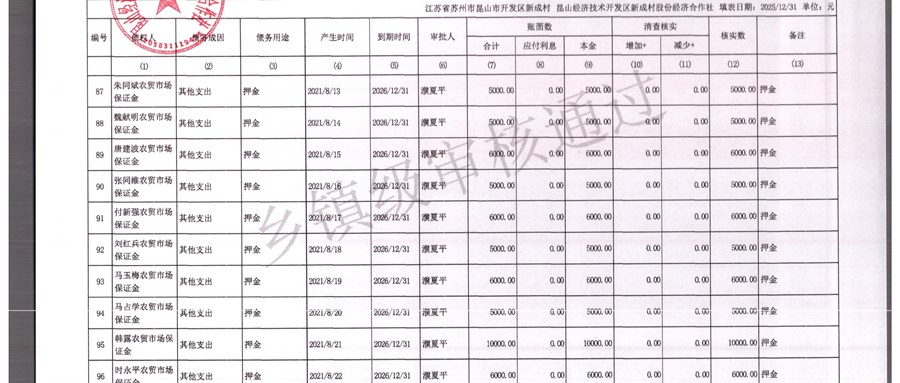 江苏省苏州市昆山市开发区新成村 昆山经济技术开发区新成村股份经济合作社 填表日期：2025/12/31 单位：元
编号 债权人 债务成因 债务用途 产生时间 到期时间 审批人 账面数 清查核实 核实数 备注
合计 应付利息 本金 增加+ 减少-
(1) (2) (3) (4) (5) (6) (7) (8) (9) (10) (11) (12) (13)
87 朱同斌农贸市场保证金 其他支出 押金 2021/8/13 2026/12/31 濮夏平 5000.00 0.00 5000.00 0.00 0.00 5000.00 押金
88 魏献明农贸市场保证金 其他支出 押金 2021/8/14 2026/12/31 濮夏平 5000.00 0.00 5000.00 0.00 0.00 5000.00 押金
89 唐建波农贸市场保证金 其他支出 押金 2021/8/15 2026/12/31 濮夏平 6000.00 0.00 6000.00 0.00 0.00 6000.00 押金
90 张同维农贸市场保证金 其他支出 押金 2021/8/16 2026/12/31 濮夏平 5000.00 0.00 5000.00 0.00 0.00 5000.00 押金
91 付新强农贸市场保证金 其他支出 押金 2021/8/17 2026/12/31 濮夏平 6000.00 0.00 6000.00 0.00 0.00 6000.00 押金
92 刘红兵农贸市场保证金 其他支出 押金 2021/8/18 2026/12/31 濮夏平 5000.00 0.00 5000.00 0.00 0.00 5000.00 押金
93 马玉梅农贸市场保证金 其他支出 押金 2021/8/19 2026/12/31 濮夏平 6000.00 0.00 6000.00 0.00 0.00 6000.00 押金
94 马占学农贸市场保证金 其他支出 押金 2021/8/20 2026/12/31 濮夏平 5000.00 0.00 5000.00 0.00 0.00 5000.00 押金
95 韩露农贸市场保证金 其他支出 押金 2021/8/21 2026/12/31 濮夏平 10000.00 0.00 10000.00 0.00 0.00 10000.00 押金
96 时永平农贸市场保证金 其他支出 押金 2021/8/22 2026/12/31 濮夏平 6000.00 0.00 6000.00 0.00 0.00 6000.00 押金
乡镇级审核通过